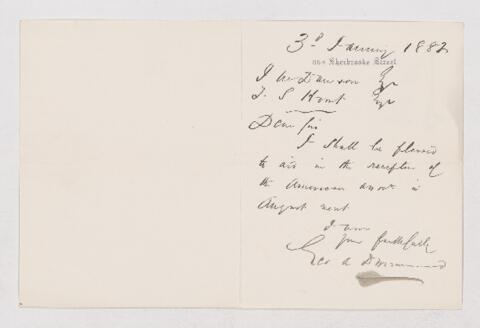 3d January 1882
Sherbrooke Street.
J W Dawson Esq
T. S Hunt Esqr
Dear Sir
I shall be pleased
to aid in the reception of
the American assocn in
August next
I am
Your faithfully
Geo A Drummond